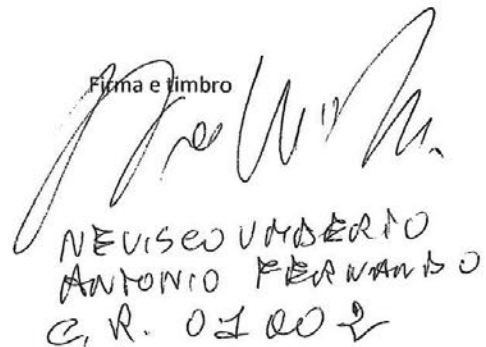 Firma e timbro
NEVISCO UMBERTO
ANTONIO FERNANDO
C.R. 01002